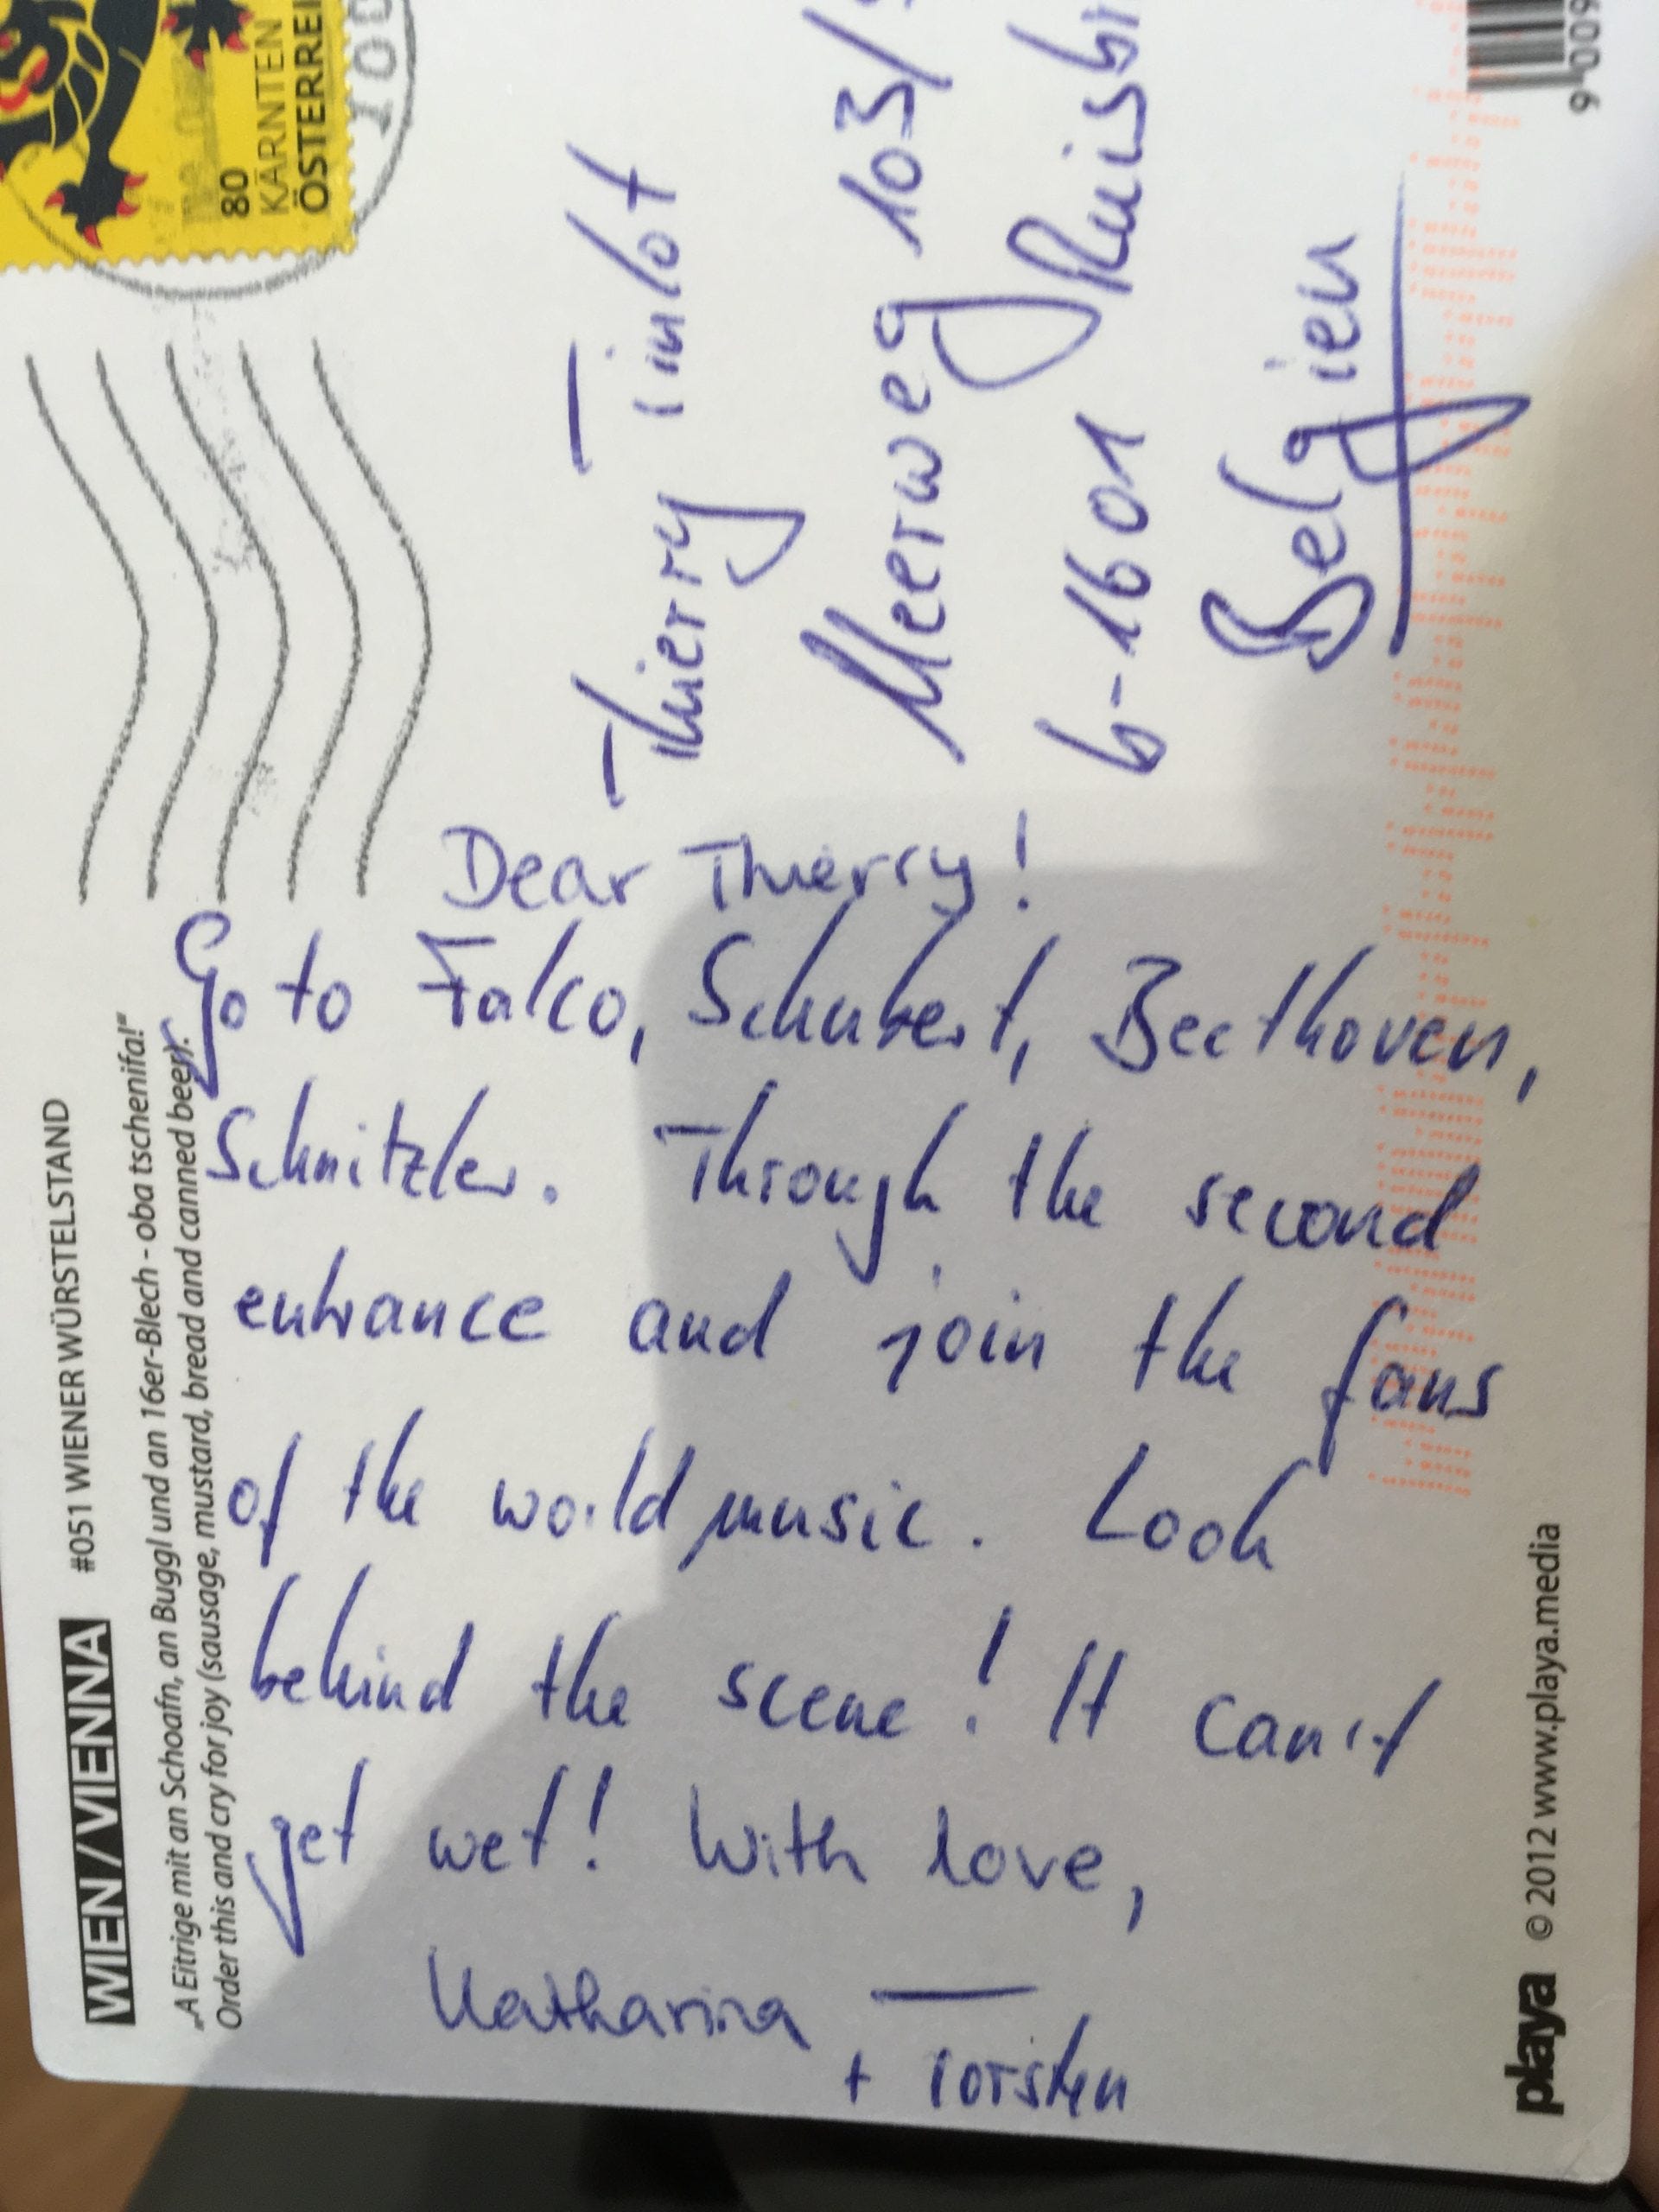 WIEN / VIENNA #051 WIENER WÜRSTELSTAND
„A Eitrige mit an Schoafn, an Buggl und an 16er-Blech - oba tschenifa!“
Order this and cry for joy (sausage, mustard, bread and canned beer).
Dear Thierry!
Go to Falco, Schubert, Beethoven,
Schnitzler. Through the second
entrance and join the fans
of the world music. Look
behind the scene! It can't
get wet! With love,
Katharina
+ Torsten
80
KÄRNTEN
ÖSTERREI
100
Thierry Tinlot
Meerweg 103/
b-1601 Ruisbr
Belgien
playa © 2012 www.playa.media
9 009